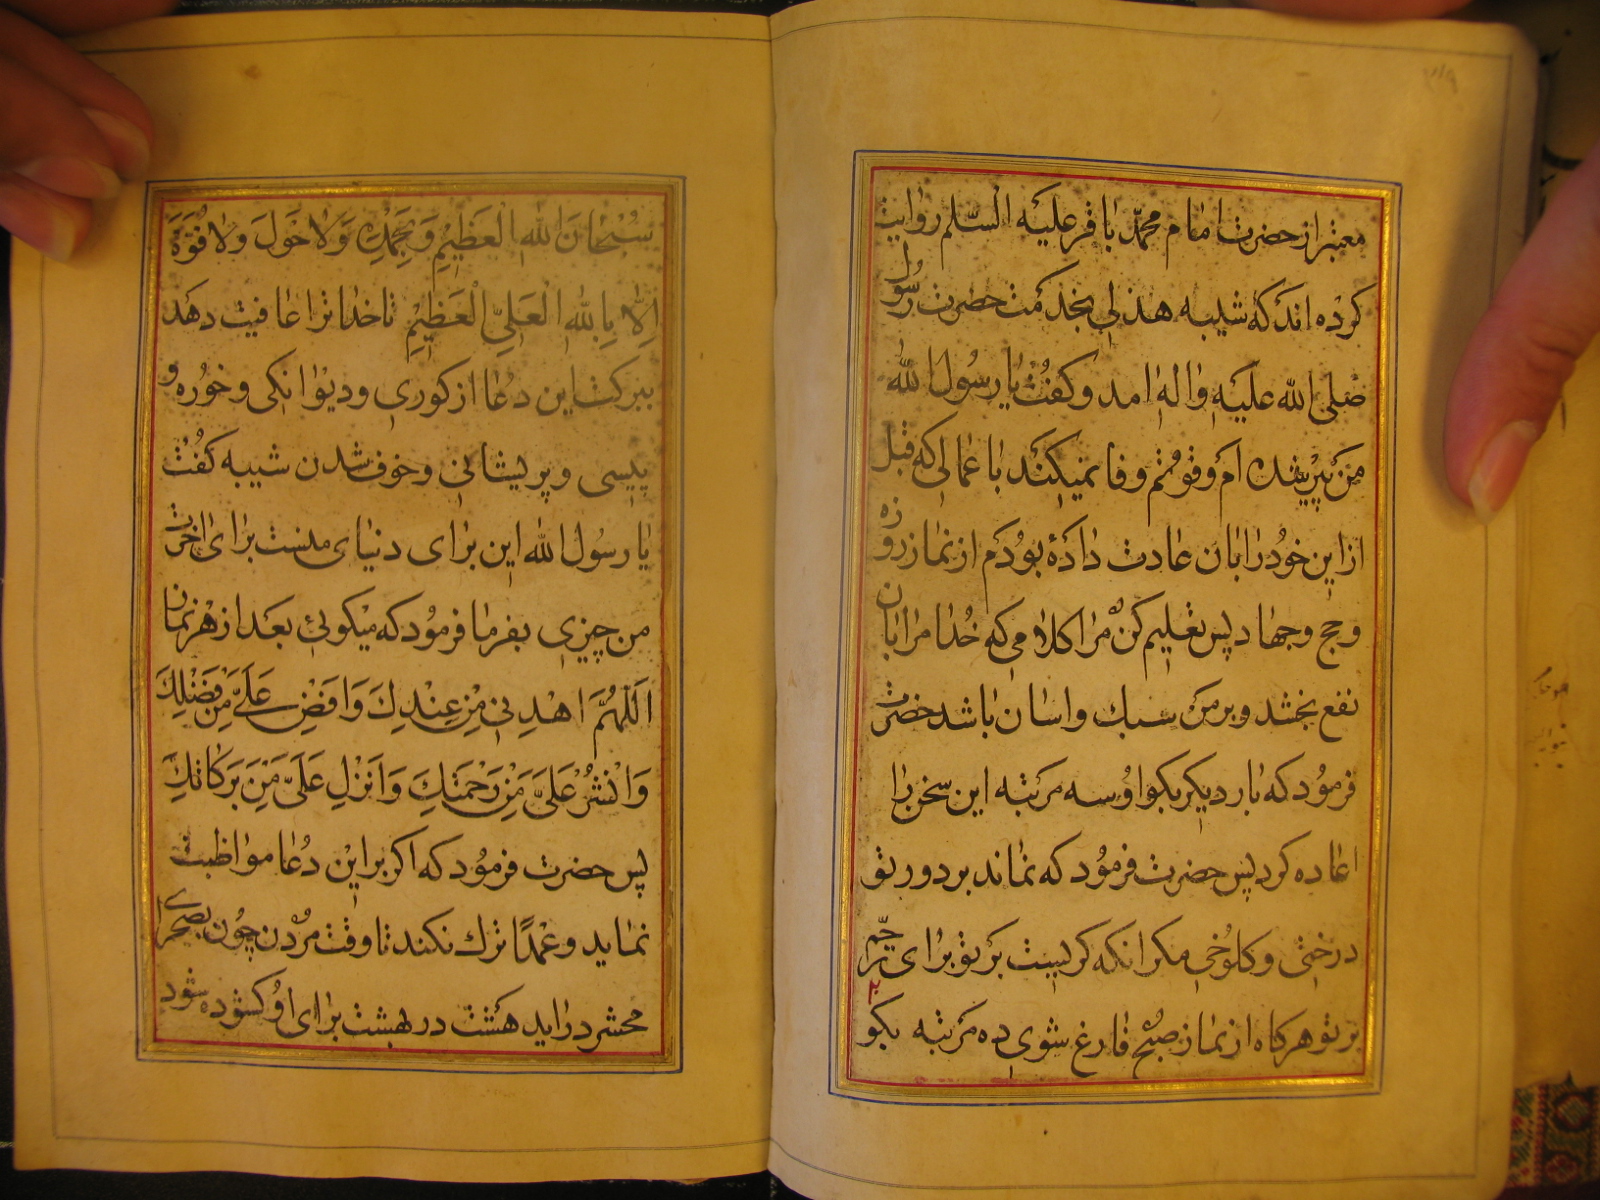 معتبر از حضرت امام محمّد باقر علیه السّلم روایت
کرده اند که شیبه هذلی بخدمت حضرت رسُول
صَلی الله علیَه واله امد و کفُت یا رسُول الله
مَن پیرشده ام و قوتم وفا نمیکند با عمالی که قبل
ازاین خود را بان عادت داده بودم از نماز روزه
و حج وجهاد پس تعلیم کن مرا کلامی که خُدا مرا بان
نفع بخشد و بر من سبک واسان باشد حضرت
فرمُود که بار دیکر بکو او سه مرَتبه این سخن را
اعاده کرد پس حضرت فرمُود که نماند بر دور تو
درختی و کلوُخی مکر انکه کریست بَر تو برای ترحّم
بر تو هرکاه از نماز صبُح فارغ شوی ده مَرتبه بکو
سُبْحانَ اللهِ العَظیِمِ وَبِحَمْدِه وَلاحَولَ ولا قُوَّةَ
اِلاّ بِاللهِ العَلِیِّ العَظیِمِ تا خدا ترا عافیت دهَد
ببرکت این دُعا از کوری و دیوانکی و خوُره و
پیسی و پریشانی و خوف شدن شیبه کفُت
یا رسُول الله این برای دنیای منست برای اخرت
من چیزی بفرما فرمُود که میکوئی بعد از هر نماز
اَللّهُمَّ اهْدِنی مِنْ عِنْدِكَ وَاَفِضْ عَلَیَّ مِنْ فَضْلِكَ
وَانْشُرْ عَلَیَّ مِنْ رَحْمَتِكَ وَاَنْزِلْ عَلَیَّ مَنِ بَرَکاتِكَ
پس حضرت فرمُود که اکر براین دُعا مواظبت
نماید وعَمْدًا ترك نکند تا وقت مرُدن چون بصحرای
محشر دراید هَشت در بهشت برای اوُ کشوده شود